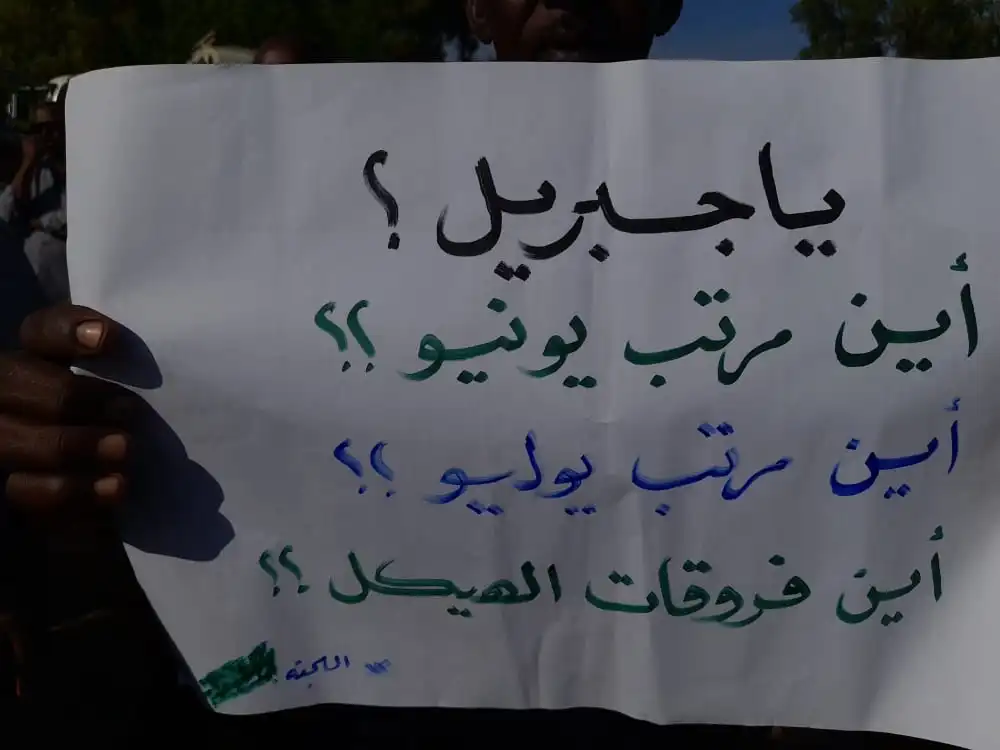 يا جبريل ؟
أين مرتب يونيو ؟؟
أين مرتب يوليو ؟؟
أين فروقات الهيكل ؟؟
اللجنة